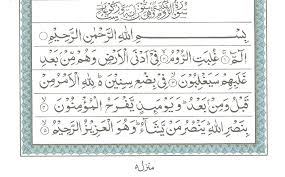 بِسْمِ اللهِ الرَّحْمٰنِ الرَّحِيْمِ
الٓمّٓ ۚ غُلِبَتِ الرُّوْمُ ۙ فِيْٓ اَدْنَى الْاَرْضِ وَهُمْ مِّنْ بَعْدِ
غَلَبِهِمْ سَيَغْلِبُوْنَ ۙ فِيْ بِضْعِ سِنِيْنَ ۬ لِلّٰهِ الْاَمْرُ مِنْ
قَبْلُ وَمِنْ بَعْدُ ؕ وَيَوْمَىِٕذٍ يَّفْرَحُ الْمُؤْمِنُوْنَ ۙ
بِنَصْرِ اللهِ ؕ يَنْصُرُ مَنْ يَّشَآءُ ؕ وَهُوَ الْعَزِيْزُ الرَّحِيْمُ ۙ
منزل ٥